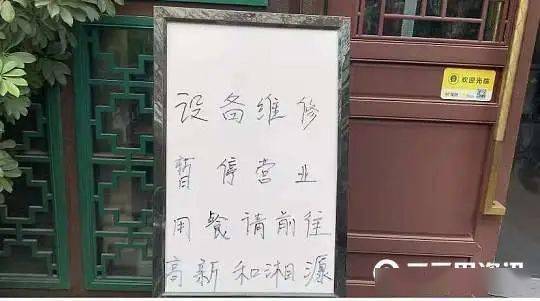 设备维修
暂停营业
用餐请前往
高新和湘源
欢迎光临